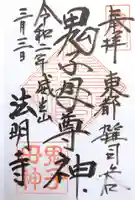 奉拝
東都雑司ヶ谷
鬼子母尊神
威光山
法明寺
令和二年
三月三日
鬼子
母神